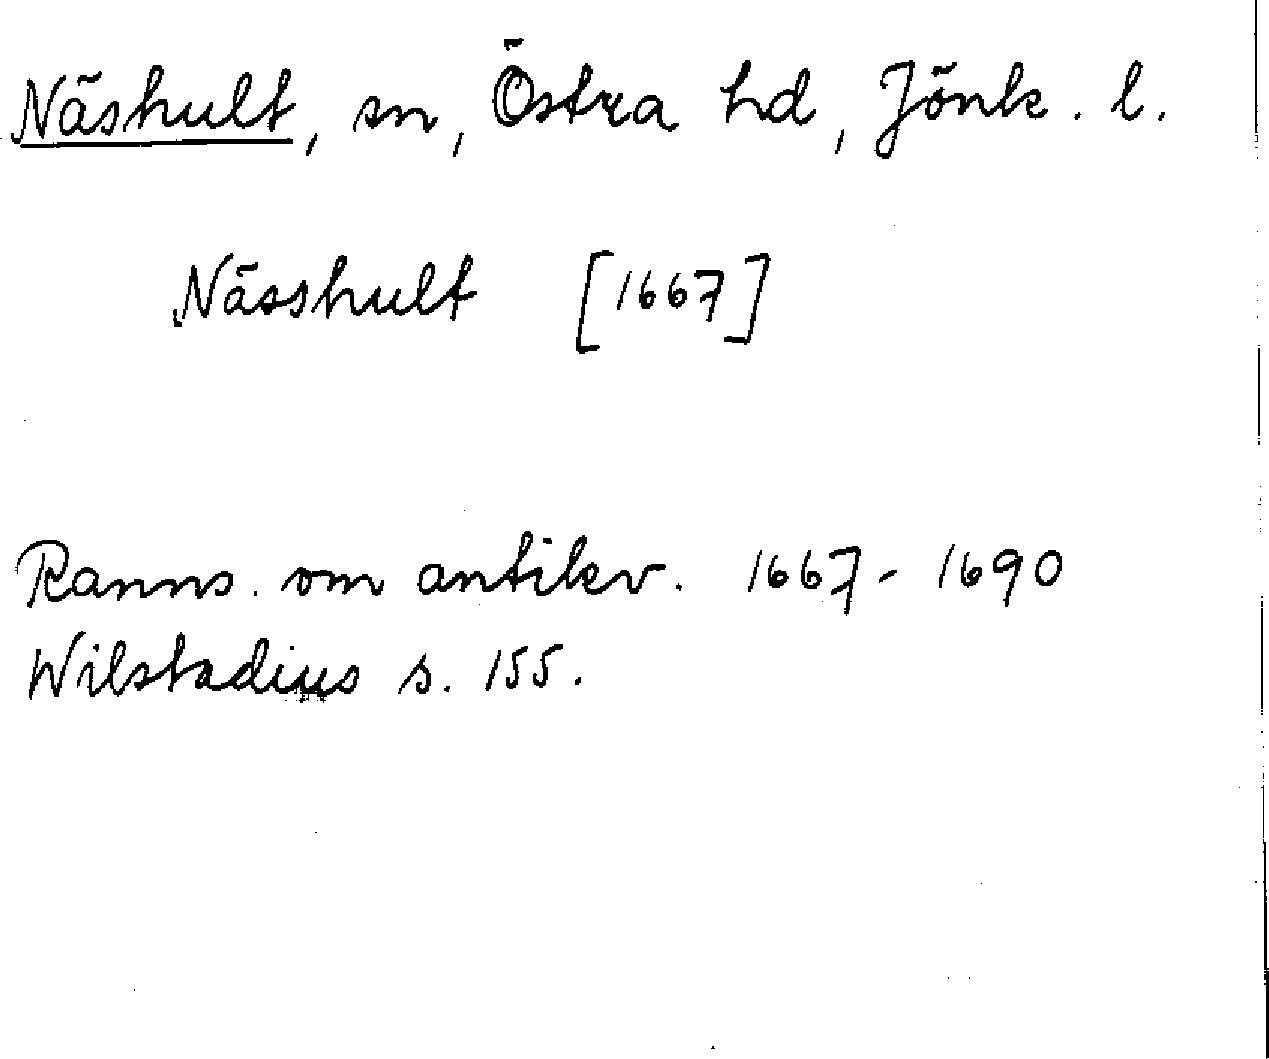 Näshult, sn, Östra hd, Jönk. l.
Nässhult [1667]
Ranns. om antikv. 1667-1690
Wilstadius s. 155.